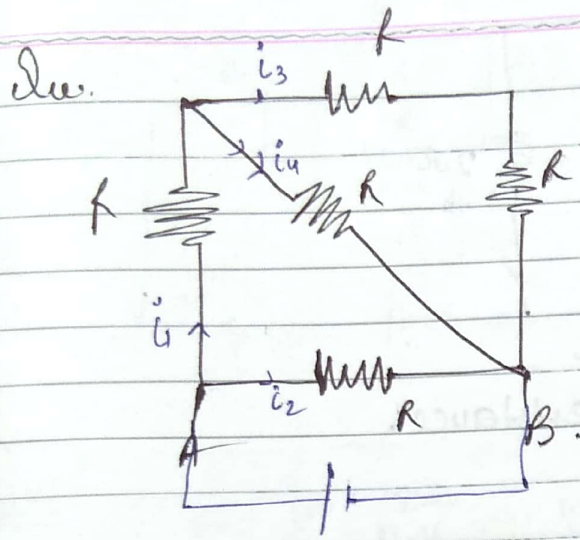 Que.
R
i3
i4
R
R
R
i1
i2
R
A
B.